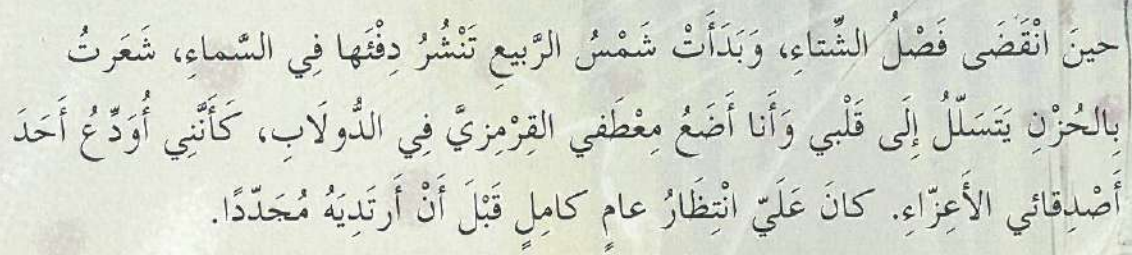 حينَ انْقَضَى فَصْلُ الشِّتاءِ، وَبَدَأَتْ شَمْسُ الرَّبيعِ تَنْشُرُ دِفْئَها فِي السَّماءِ، شَعَرتُ
بِالحُزْنِ يَتَسَلّلُ إِلَى قَلْبي وَأَنا أَضَعُ مِعْطَفي القِرْمِزيَّ فِي الدُّولَابِ، كَأَنَّنِي أُوَدِّعُ أَحَدَ
أَصْدِقائي الأَعِزّاءِ. كانَ عَلَيّ انْتِظَارُ عامٍ كامِلٍ قَبْلَ أَنْ أَرتَدِيَهُ مُجَدّدًا.